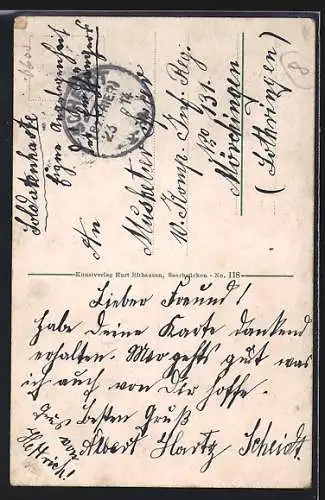 Soldatenkarte
Eigne Angelegenheit
des Empfängers
An
Musketier
10. Komp. Inf. Reg.
No 131.
Mörchingen
(Lothringen)
8
Kunstverlag Kurt Rithausen, Saarbrücken - No. 118
Lieber Freund!
habe deine Karte dankend
erhalten. Mir gehts gut was
ich auch von Dir hoffe.
besten Gruß
von Albert Hartz Scheidt.